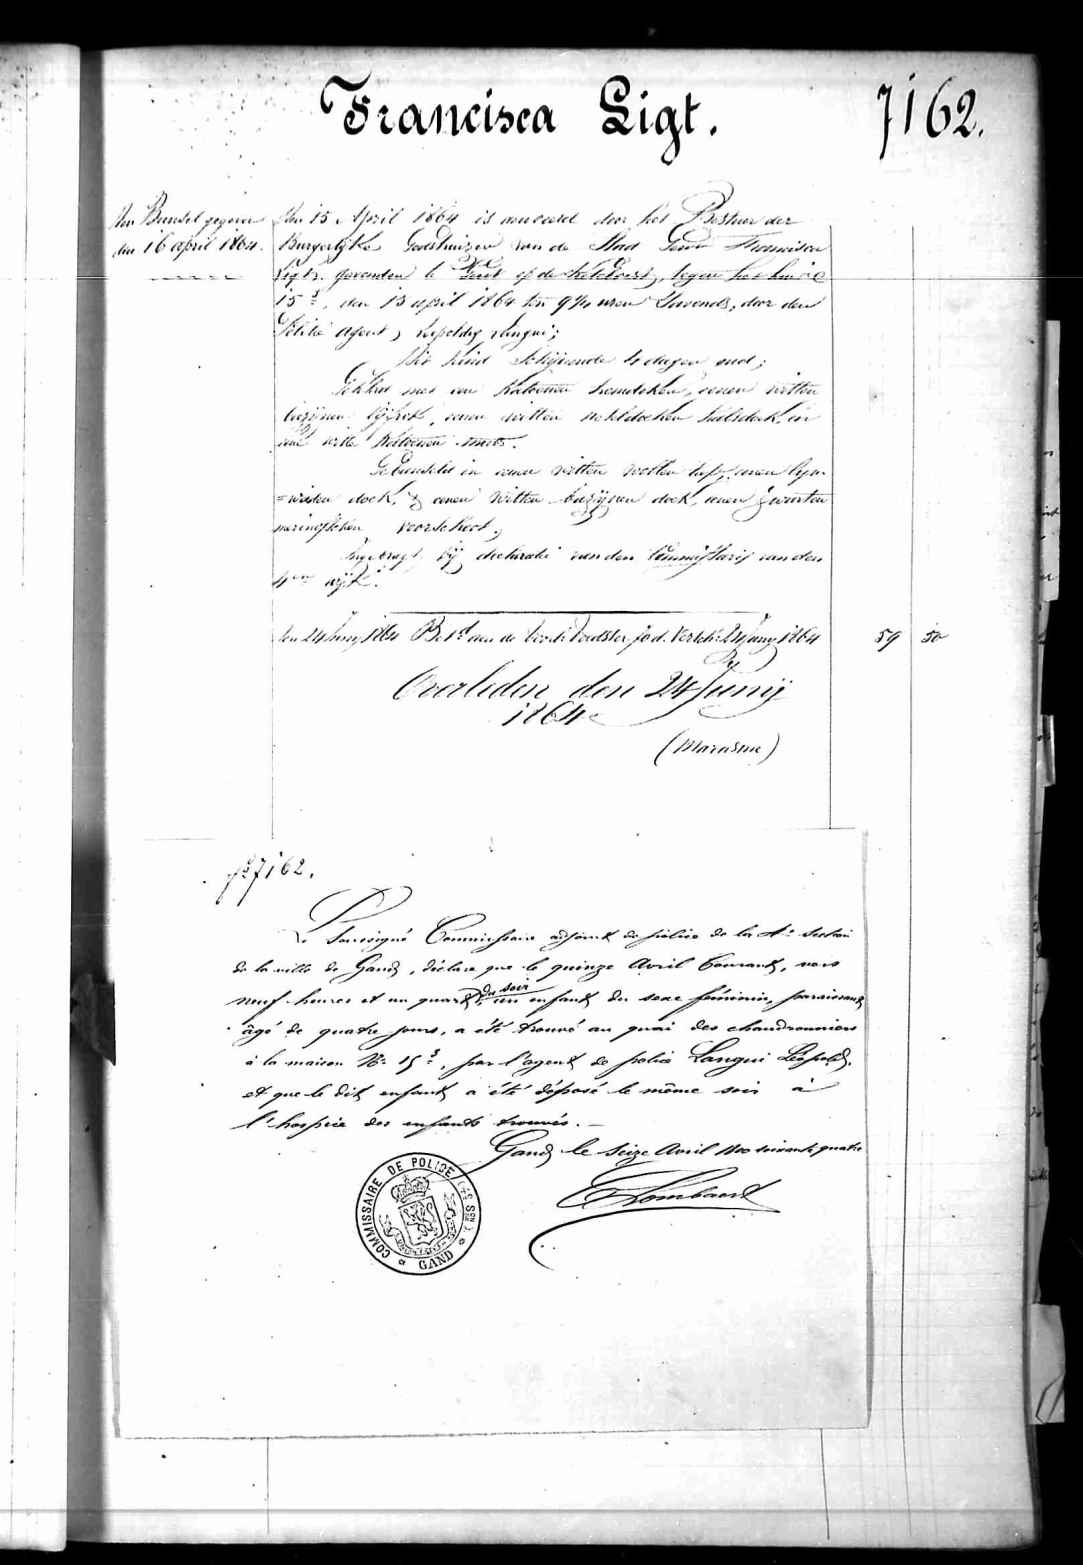 Francisca Ligt. 7162.
Den Bundel gegeven
den 16 april 1864.
Den 15 April 1864 is aenveerd door het Bestuer der
Burgerlyke Godshuizen van de Stad Gend Francisca
Ligt. gevonden te Gent op de Ketelvest, tegen het huis
15, den 15 april 1864 ten 9 1/4 uren s'avonds, door den
Politie Agent, Leopoldus Langui;
Dit kind schijnende 4 dagen oud;
Gekleed met een katoenen hemdeken, eenen witten
bazijnen lijfrok, eenen witten halsdoek, en
eene witte katoenen muts.
Gebundeld in eenen witten wollen eenen lijn
=waden doek, & eenen witten bazijnen doek, eenen zwarten
voorschoot,
Ingebragt bij declaratie van den Commissaris van den
4en wijk.
den 24 Junij 1864 Bet. aen de Voedster 24 Junij 1864 59 50
Overleden den 24 Junij
1864
(Marasme)
No 7162.
Le Soussigné Commissaire adjoint de police de la 4e section
de la ville de Gand, déclare que le quinze Avril Courant, vers
neuf heures et un quart du soir, un enfant du sexe féminin, paraissant
âgé de quatre jours, a été trouvé au quai des chaudronniers
à la maison No 15, par l'agent de police Langui Léopold,
et que le dit enfant a été déposé le même soir à
l'hospice des enfants trouvés.
Gand le seize Avril 1800 soixante quatre
Lombaert
COMMISSAIRE DE POLICE (4E SON) GAND